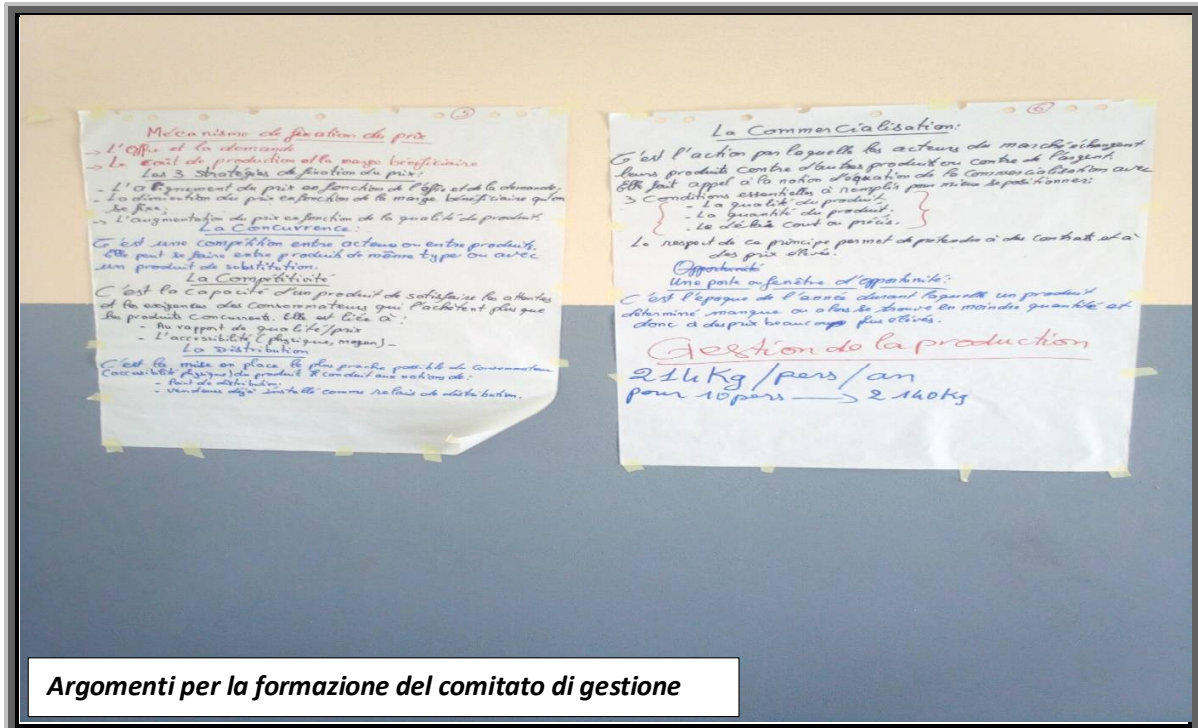 5
Mécanisme de fixation du prix
-> L'Offre et la demande
-> Le coût de production et la marge bénéficiaire
Les 3 Stratégies de fixation du prix:
- L'alignement du prix en fonction de l'offre et de la demande,
- La diminution du prix en fonction de la marge bénéficiaire qu'on
se fixe;
- L'augmentation du prix en fonction de la qualité du produit.
La Concurrence:
C'est une compétition entre acteurs ou entre produits.
Elle peut se faire entre produits de même type ou avec
un produit de substitution.
La Compétitivité
C'est la capacité d'un produit de satisfaire les attentes
et les exigences des consommateurs qui l'achètent plus que
les produits concurrents. Elle est liée à:
- Au rapport de qualité/prix
- L'accessibilité (physique, moyen)-
La Distribution
C'est la mise en place le plus proche possible du consommateur
(accessibilité physique) du produit conduit aux notions de:
- Point de distribution.
- vendeurs déjà installé comme relais de distribution.
6
La Commercialisation:
C'est l'action par laquelle les acteurs du marché échangent
leurs produits contre d'autres produit ou contre de l'argent.
Elle fait appel à la notion d'équation de la Commercialisation avec
3 Conditions essentielles à remplir pour mieux se positionner:
- La qualité du produit
- La quantité du produit.
- Le délai court ou précis.
Le respect de ce principe permet de prétendre à des contrats et à
des prix élevés.
Opportunité
Une porte ou fenêtre d'opportunité:
C'est l'époque de l'année durant laquelle un produit
déterminé manque ou alors se trouve en moindre quantité et
donc à des prix beaucoup plus élevés.
Gestion de la production
214Kg/pers/an
pour 10pers -> 2 140Kg
Argomenti per la formazione del comitato di gestione